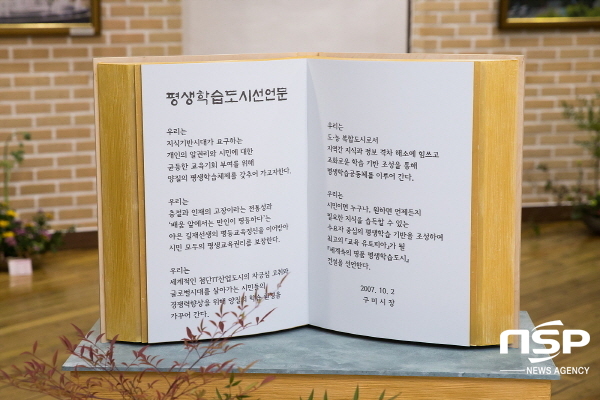 평생학습도시선언문
우리는
지식기반시대가 요구하는
개인의 알권리와 시민에 대한
균등한 교육기회 부여를 위해
양질의 평생학습체제를 갖추어 가고자한다.
우리는
충절과 인재의 고장이라는 전통성과
'배움 앞에서는 만인이 평등하다'는
야은 길재선생의 평등교육정신을 이어받아
시민 모두의 평생교육권리를 보장한다.
우리는
세계적인 첨단IT산업도시의 자긍심 고취와
글로벌시대를 살아가는 시민들의
경쟁력향상을 위해 양질의 학습 환경을
가꾸어 간다.
우리는
도·농 복합도시로서
지역간 지식과 정보 격차 해소에 힘쓰고
조화로운 학습 기반 조성을 통해
평생학습공동체를 이루어 간다.
우리는
시민이면 누구나, 원하면 언제든지
필요한 지식을 습득할 수 있는
수요자 중심의 평생학습 기반을 조성하여
최고의 『교육 유토피아』가 될
『세계속의 명품 평생학습도시』
건설을 선언한다.
2007. 10. 2
구미시장
nsp
NEWS AGENCY